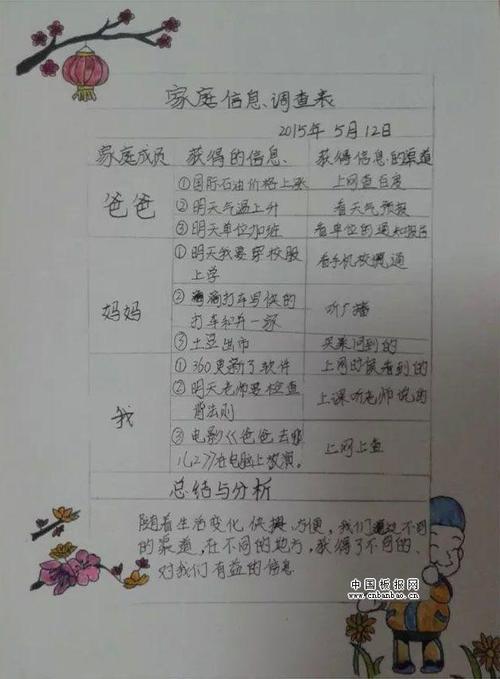 家庭信息、调查表
2015年 5月12日
家庭成员 获得的信息、 获得信息的渠道
爸爸
①国际石油价格上涨 上网查百度
②明天气温上升 看天气预报
③明天单位加班 看单位的通知报告
妈妈
①明天我要穿校服
上学
看手机校讯通
②滴滴打车与快的
打车合并一家
听广播
③土豆出市 买菜问到的
我
①360更新了软件 上网的时候看到的
②明天老师要检查
背法则
上课听老师说的
③电影《爸爸去哪
儿2》在电脑上放演。
上网上查
总结与分析
随着生活变化,快捷、方便,我们通过不同
的渠道,在不同的地方,获得了不同的、
对我们有益的信息
中国板报网
www.cnbanbao.cn